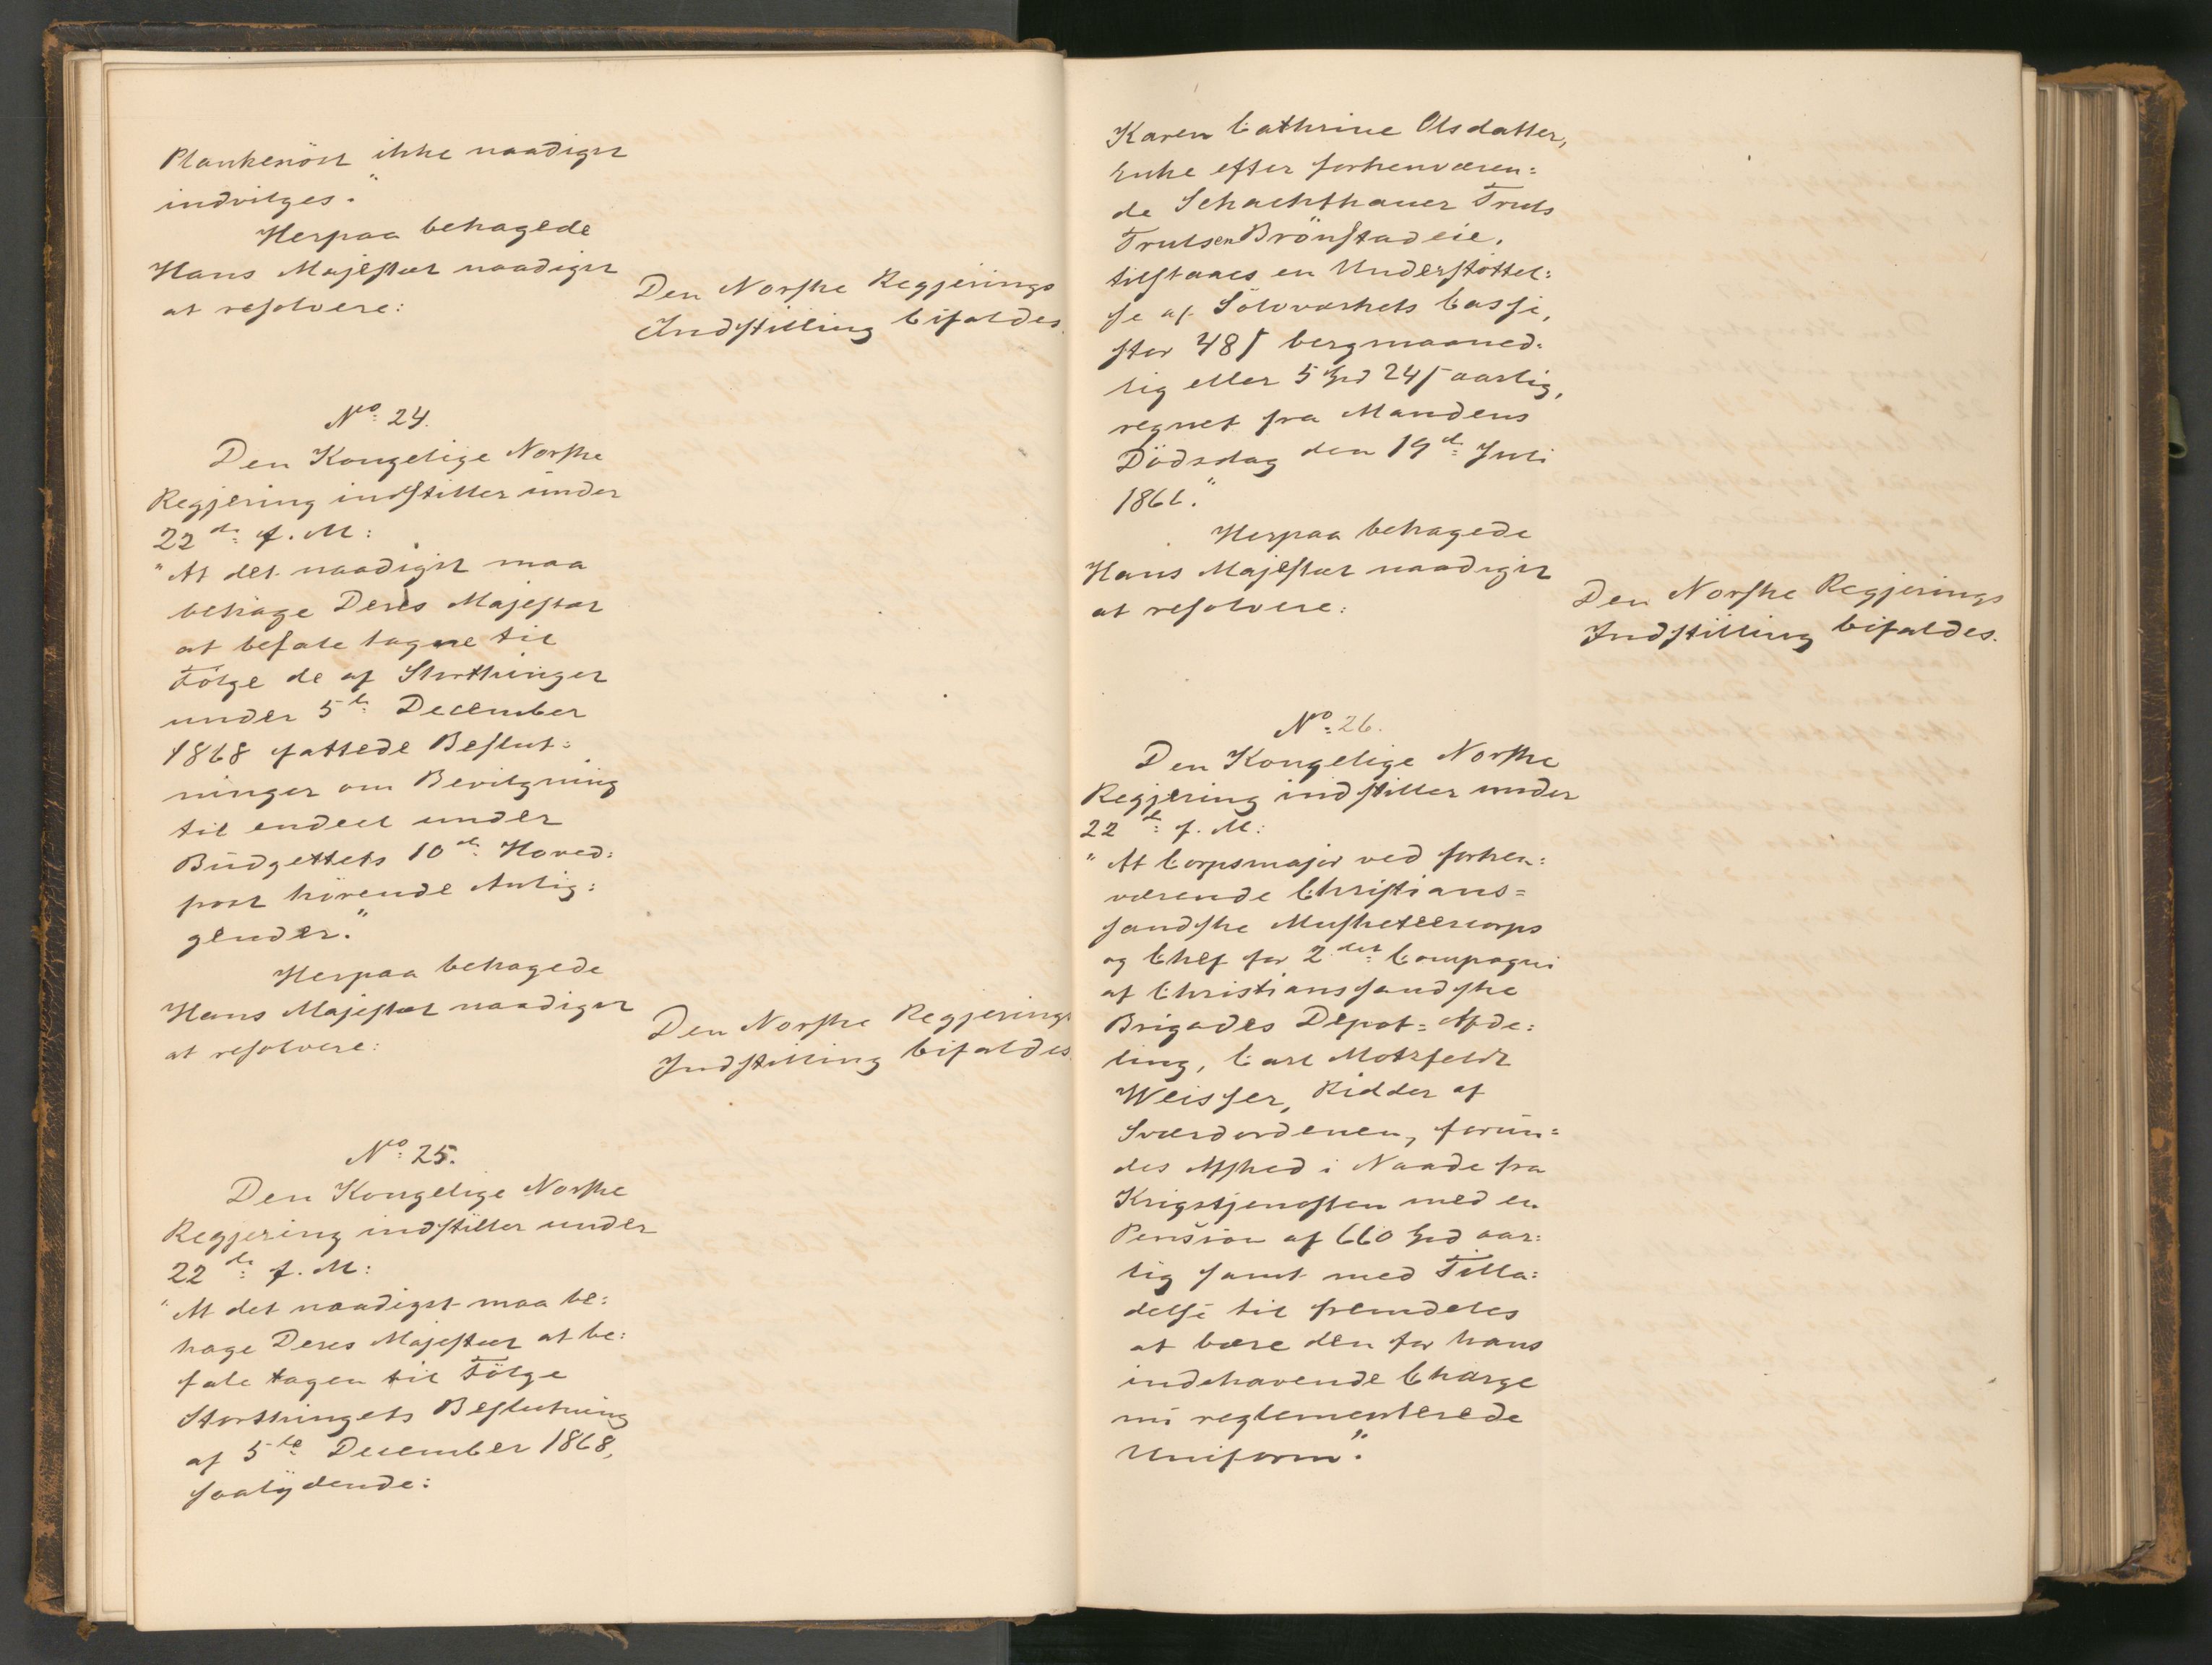 Plankenöst ikke naadigst
indvilges."
Herpaa behagede
Hans Majestæt naadigst
at resolvere:
Den Norske Regjerings
Indstilling bifaldes.
No. 24.
Den Kongelige Norske
Regjering indstiller under
22de f. M:
"At det naadigst maa
behage Deres Majestæt
at befale tagne til
Følge de af Storthinget
under 5te December
1868 fattede Beslut:
ninger om Bevilgning
til endeel under
Budgettets 10de Hoved:
post hörende Anlig:
gender."
Herpaa behagede
Hans Majestæt naadigst
at resolvere:
Den Norske Regjerings
Indstilling bifaldes.
No. 25.
Den Kongelige Norske
Regjering indstiller under
22de f. M:
"At det naadigst maa be:
hage Deres Majestæt at be:
fale tagen til Fölge
Storthingets Beslutning
af 5te December 1868,
saalydende:
Karen Cathrine Olsdatter,
Enke efter forhenværen:
de Schachthauer Truls
Trulsen Brönstadeie,
tilstaaes en Understöttel:
se af Sölvværkets Casse,
stor 48 ſ bergmaaned:
lig eller 5 Spd 24 ſ aarlig,
regnet fra Mandens
Dödsdag den 19de Juli
1866."
Herpaa behagede
Hans Majestæt naadigst
at resolvere:
Den Norske Regjerings
Indstilling bifaldes.
No. 26.
Den Kongelige Norske
Regjering indstiller under
22de f. M:
"At Corpsmajor ved forhen:
værende Christians=
sandske Musketeercorps
og Chef for 2det Compagni
af Christianssandske
Brigades Depot=Afde:
ling, Carl Motzfeldt
Weisser, Ridder af
Sværdordenen, forun=
des Afsked i Naade fra
Krigstjenesten med en
Pension af 660 Spd aar:
lig samt med Tilla:
delse til fremdeles
at bære den for hans
indehavende Charge
nu reglementerede
Uniform".